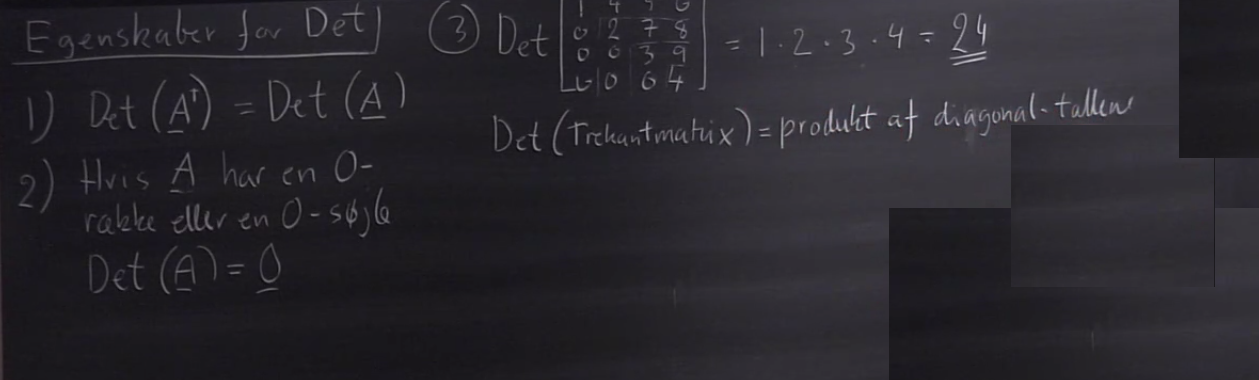 Egenskaber for Det
1) Det (A^T) = Det (A)
2) Hvis A har en 0-
række eller en 0-søjle
Det (A) = 0
③ Det [
0 2 7 8
0 0 3 9
0 0 0 4 ] = 1 · 2 · 3 · 4 = 24
Det (Trekantmatrix) = produkt af diagonal-tallene